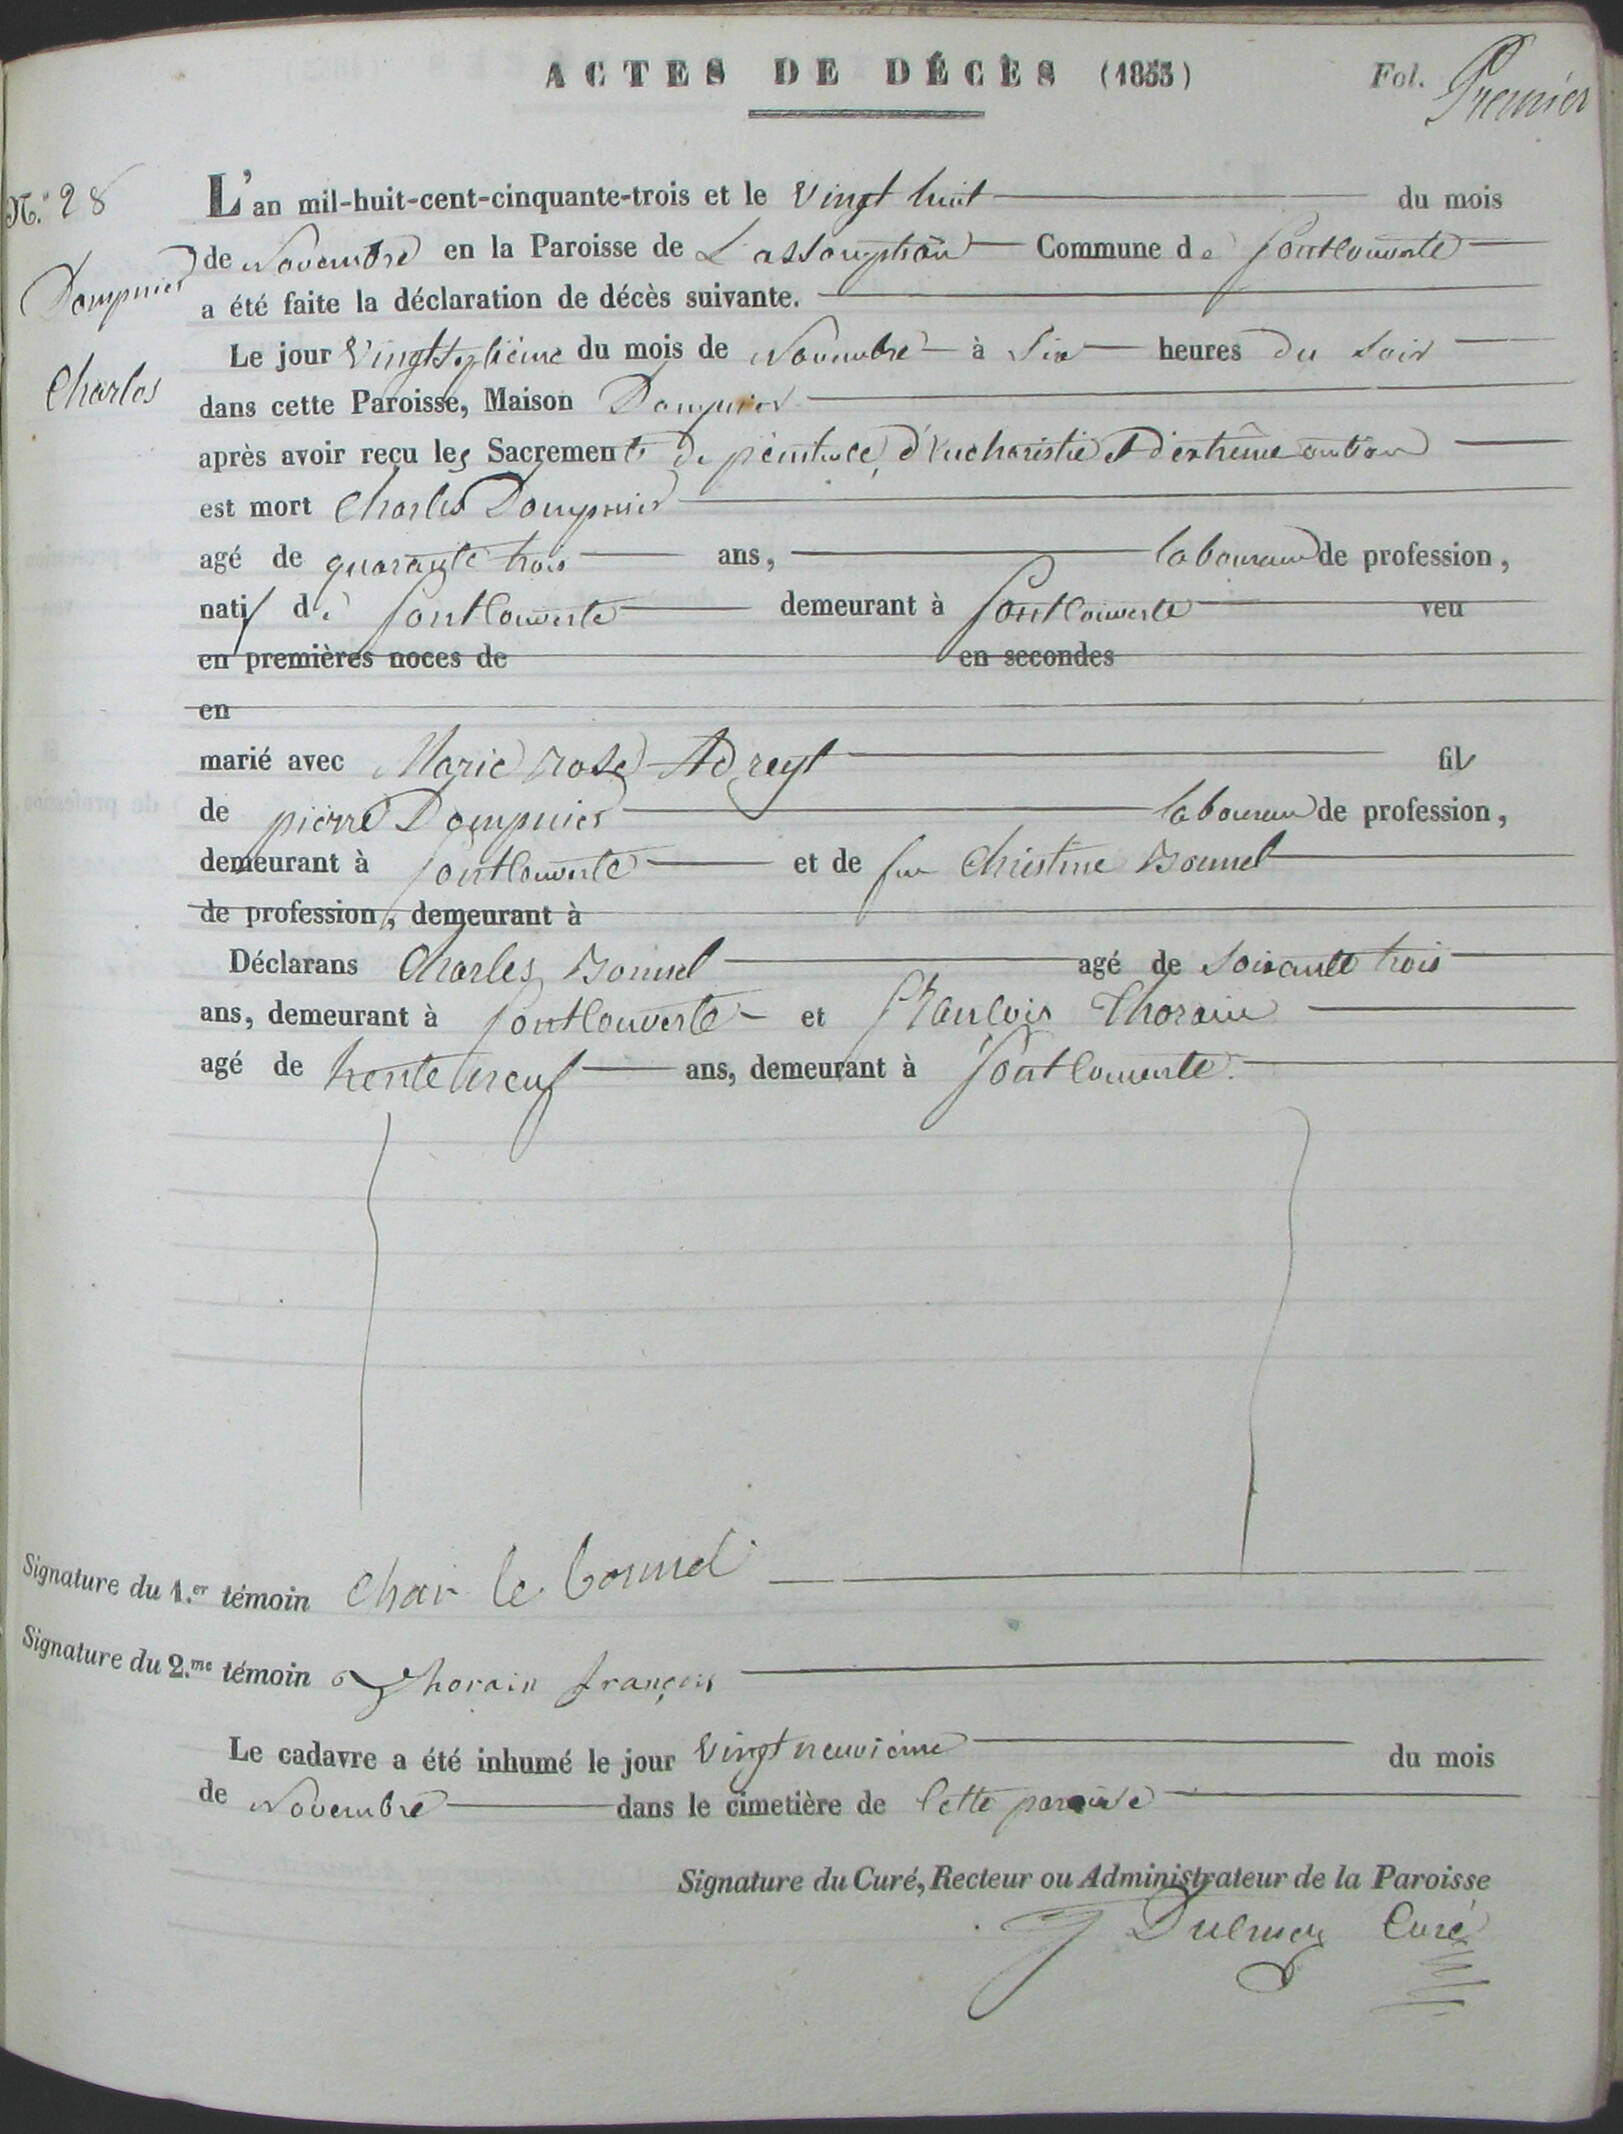 ACTES DE DÉCÈS (1853) Fol. Premier
N.° 28 L'an mil-huit-cent-cinquante-trois et le Vingt huit du mois
Dompnier de Novembre en la Paroisse de L'assomption Commune de fontcouverte
a été faite la déclaration de décès suivante.
Charles Le jour Vingtseptième du mois de Novembre à Six heures du Soir
dans cette Paroisse, Maison Dompnier
après avoir reçu les Sacrements de pénitence, d'Eucharistie et d'extrême onction
est mort Charles Dompnier
agé de quarante trois ans, laboureur de profession,
natif de fontcouverte demeurant à fontcouverte veu
en premières noces de en secondes
en
marié avec Marie rose Adreyt fils
de pierre Dompnier laboureur de profession,
demeurant à fontcouverte et de feu Christine Bonnel
de profession, demeurant à
Déclarans Charles Bonnel agé de soixante trois
ans, demeurant à fontcouverte et françois Thorain
agé de trente neuf ans, demeurant à fontcouverte.
Signature du 1.er témoin Char le bonnel
Signature du 2.me témoin Thorain françois
Le cadavre a été inhumé le jour Vingt neuvième du mois
de Novembre dans le cimetière de cette paroisse
Signature du Curé, Recteur ou Administrateur de la Paroisse
Curé